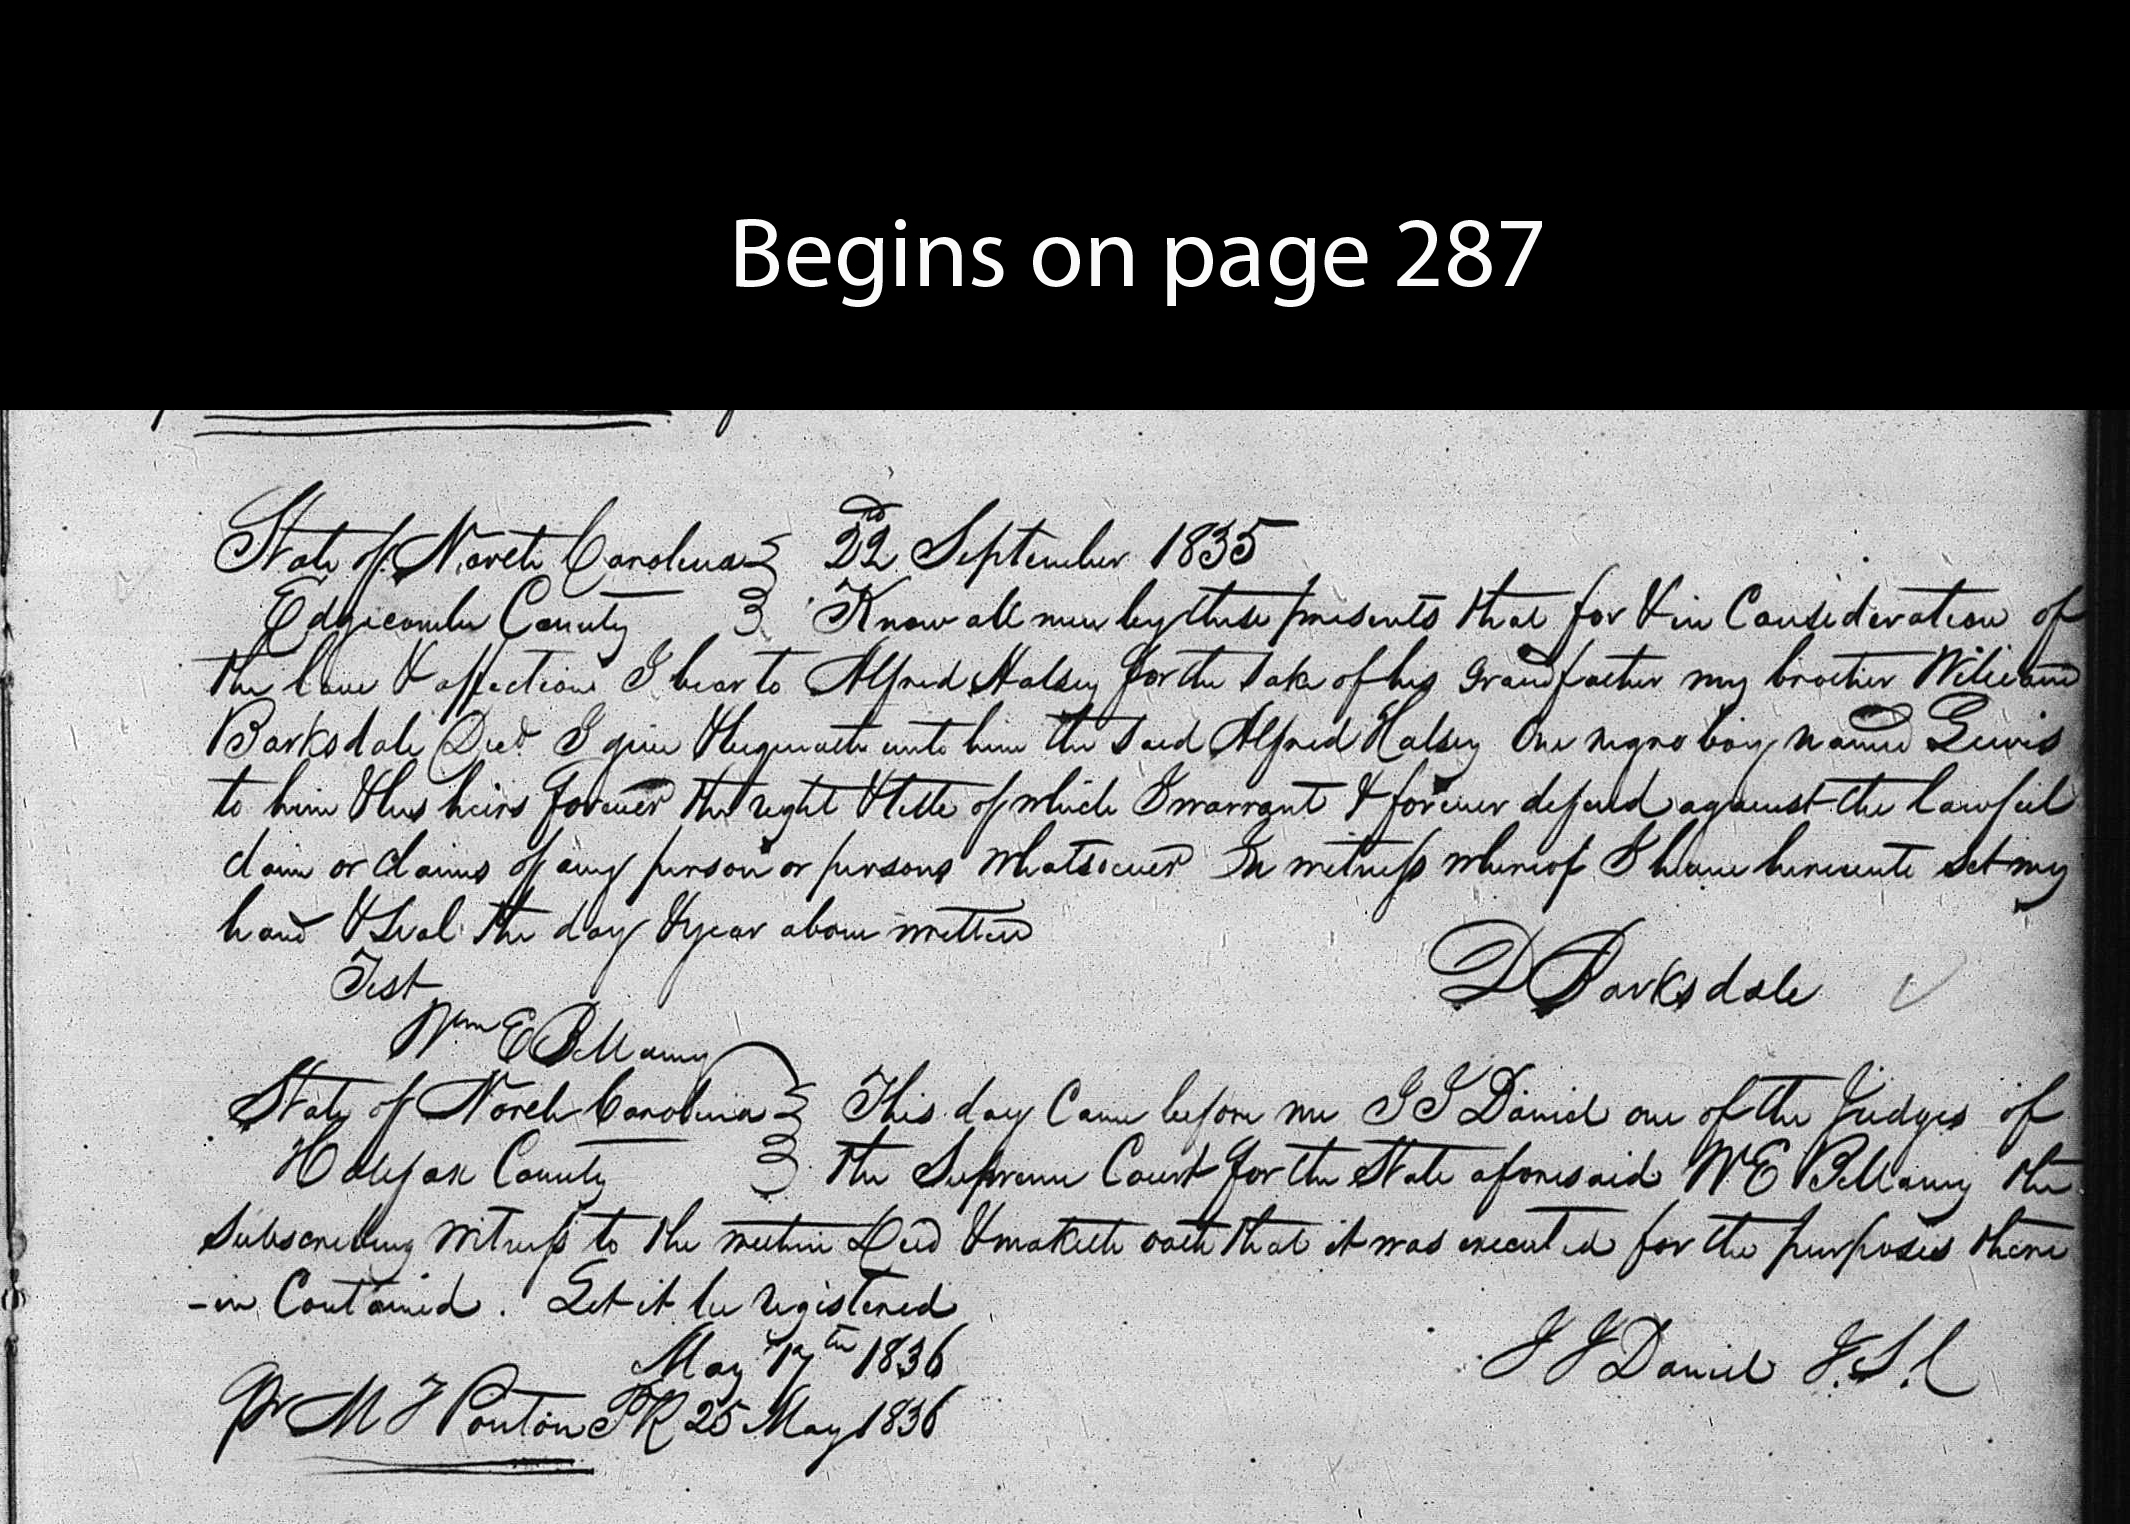 Begins on page 287
State of North Carolina } 22nd September 1835
Edgecombe County } Know all men by these presents that for & in Consideration of
the love & affection I bear to Alfred Halsey for the sake of his Grandfather my brother William
Barksdale Decd I give & bequeath unto him the said Alfred Halsey One negro boy named Lewis
to him & his heirs forever the right & title of which I warrant & forever defend against the lawful
claim or claims of any person or persons whatsoever In witness whereof I have hereunto set my
hand & seal the day & year above written
Test
D Barksdale
Wm E Bellamy
State of North Carolina } This day Came before me J J Daniel one of the Judges of
Halifax County } the Supreme Court for the State aforesaid W E Bellamy the
subscribing witness to the within Deed & maketh oath that it was executed for the purposes there
-in Contained. Let it be registered
May 17th 1836
J J Daniel J.S.C
Pr M F Ponton PR 25 May 1836